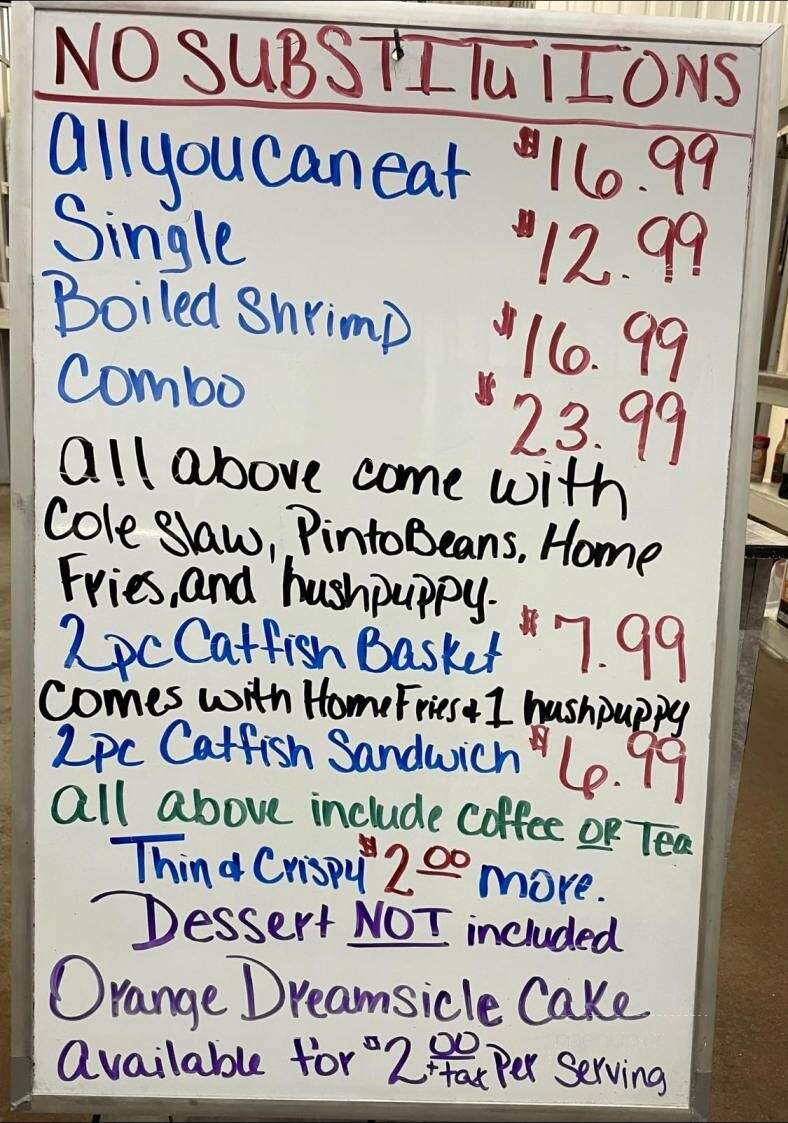 NO SUBSTITUTIONS
All you can eat $16.99
Single $12.99
Boiled Shrimp $16.99
Combo $23.99
All above come with
Cole Slaw, Pinto Beans, Home
Fries, and hushpuppy.
2pc Catfish Basket $7.99
Comes with Home Fries & 1 hushpuppy
2pc Catfish Sandwich $6.99
All above include Coffee OR Tea
Thin & Crispy $2.00 more.
Dessert NOT included
Orange Dreamsicle Cake
Available for $2.00 +tax Per Serving